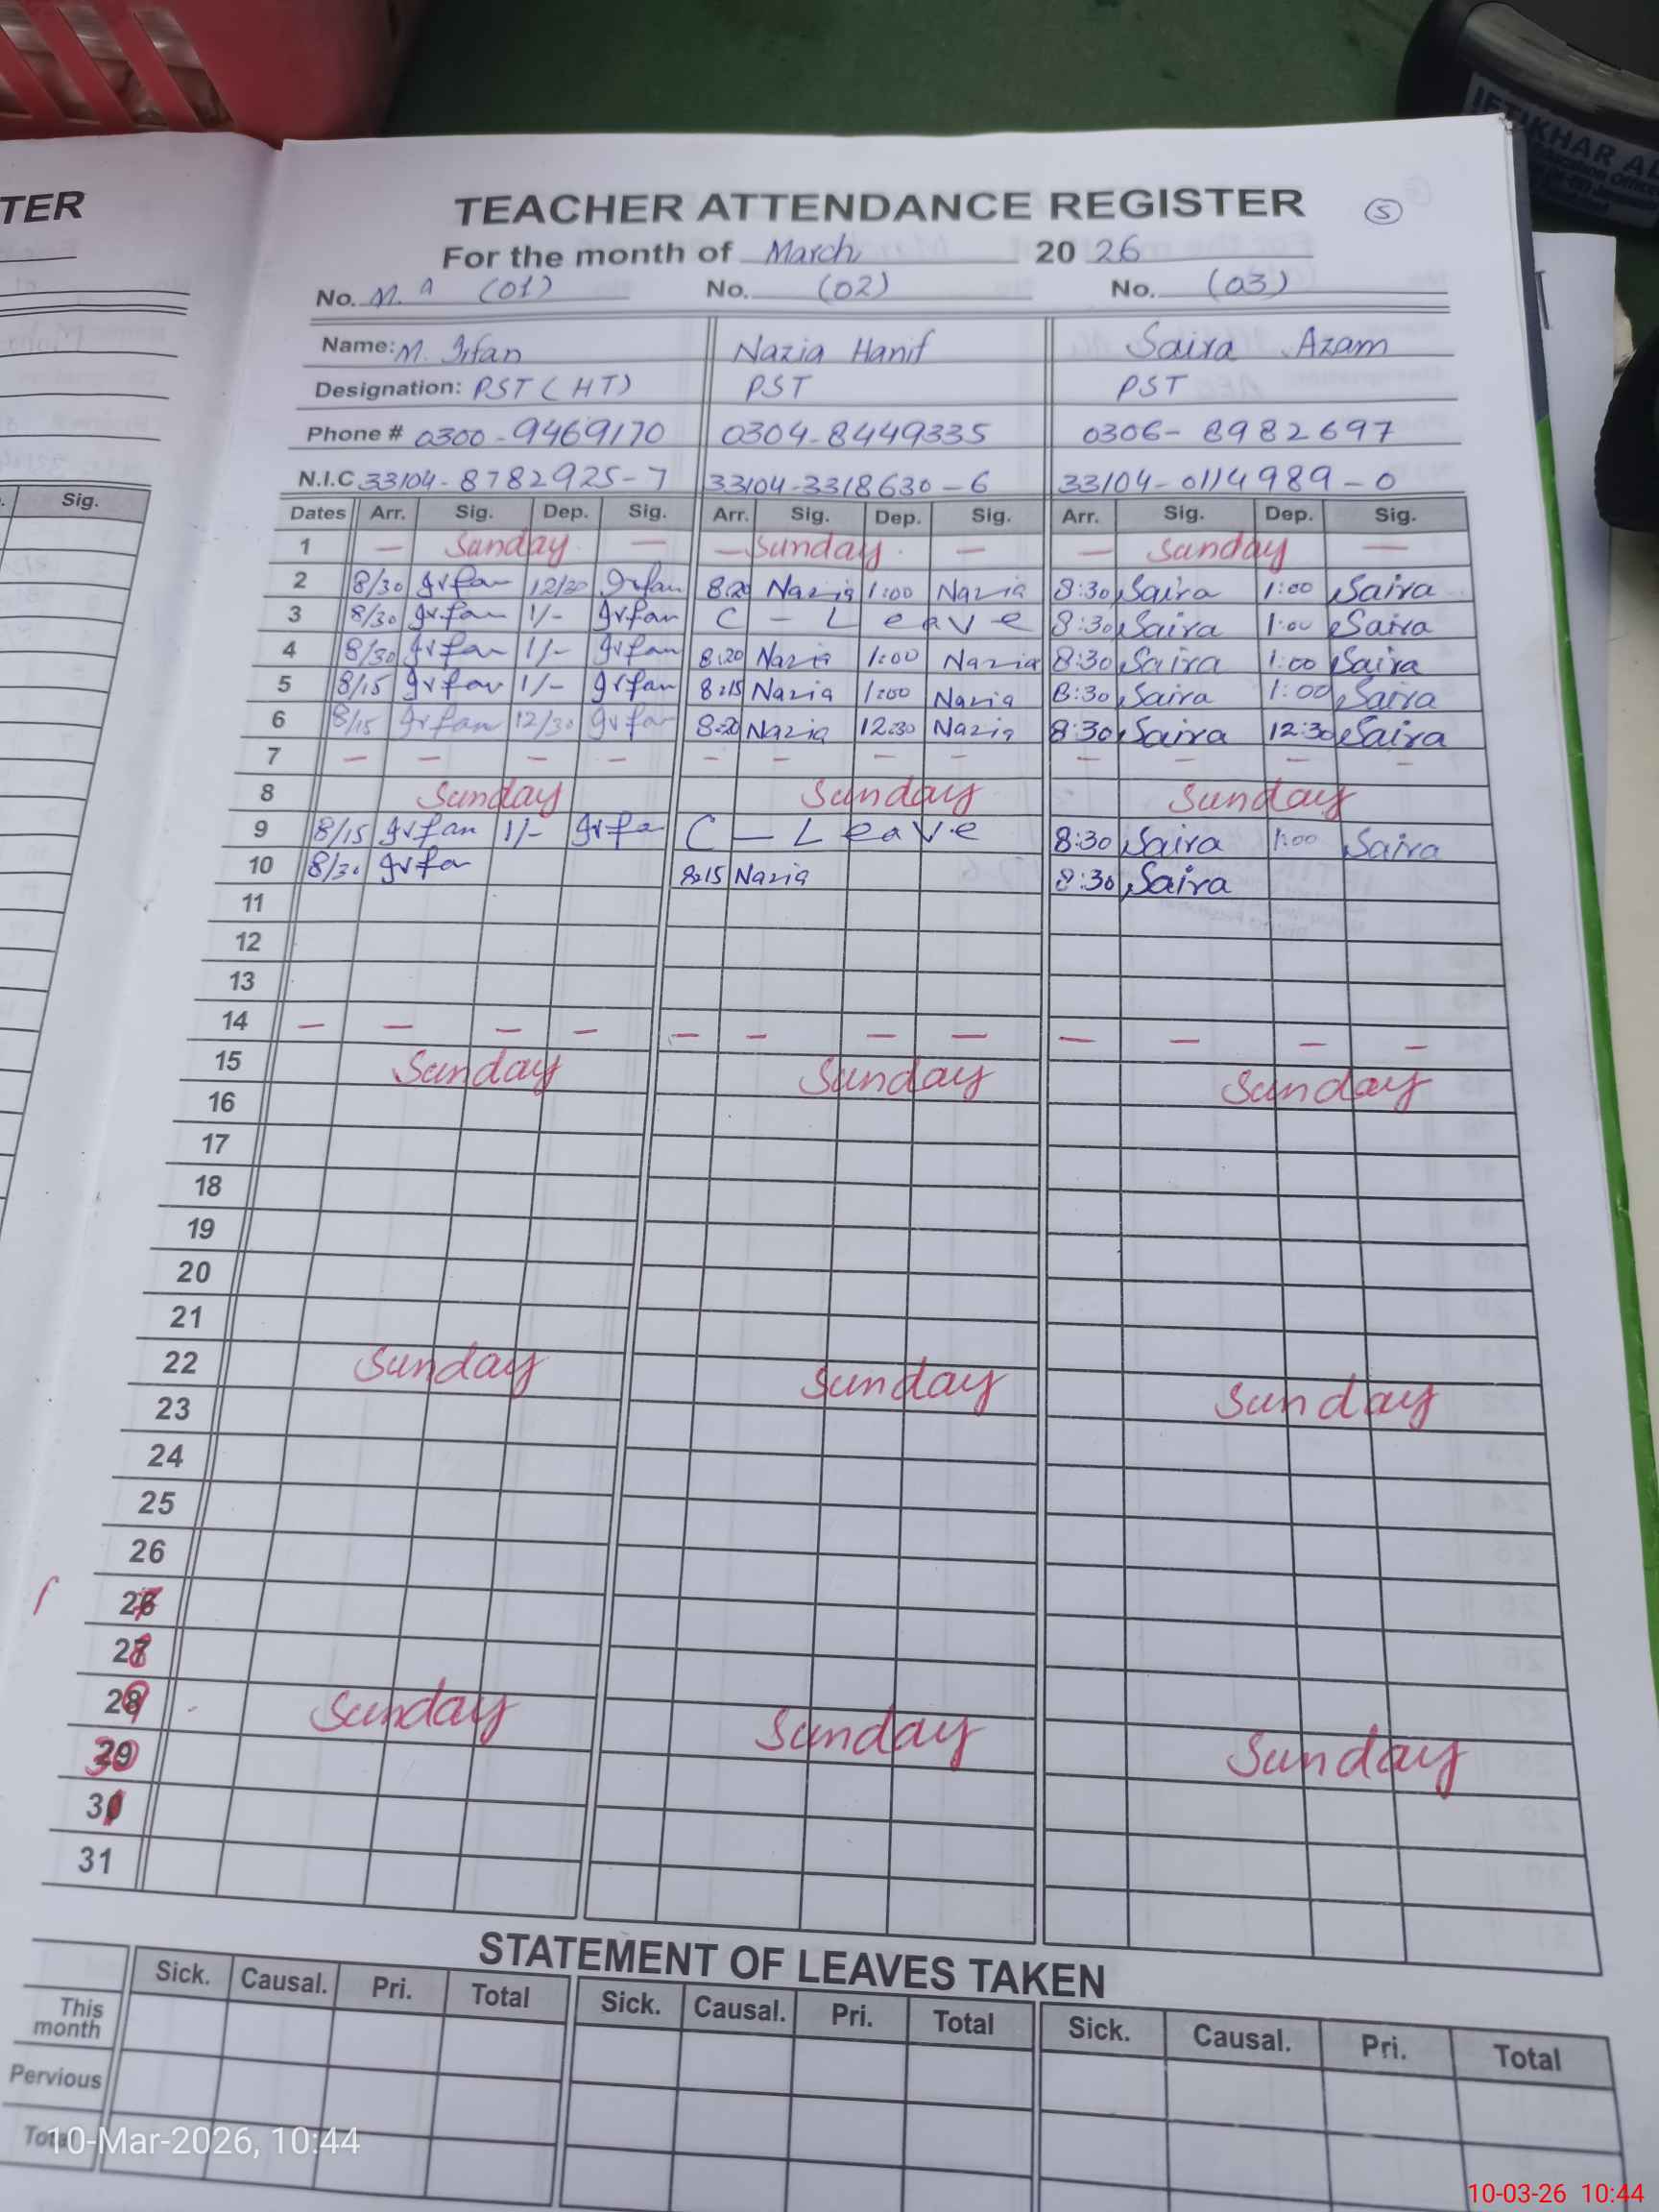 TER
Sig.
IFTIKHAR
TEACHER ATTENDANCE REGISTER 5
For the month of March 2026
No. M.A (01) No. (02) No. (03)
Name: M. Irfan Nazia Hanif Saira Azam
Designation: PST (HT) PST PST
Phone # 0300-9469170 0304-8449335 0306-8982697
N.I.C 33104-8782925-7 33104-3318630-6 33104-0114989-0
Dates Arr. Sig. Dep. Sig. Arr. Sig. Dep. Sig. Arr. Sig. Dep. Sig.
1 — Sunday — — Sunday — — Sunday —
2 8/30 Irfan 12/30 Irfan 8:20 Nazia 1:00 Nazia 8:30 Saira 1:00 Saira
3 8/30 Irfan 1/- Irfan C - Leave 8:30 Saira 1:00 Saira
4 8/30 Irfan 1/- Irfan 8:20 Nazia 1:00 Nazia 8:30 Saira 1:00 Saira
5 8/15 Irfan 1/- Irfan 8:15 Nazia 1:00 Nazia 8:30 Saira 1:00 Saira
6 8/15 Irfan 12/30 Irfan 8:20 Nazia 12:30 Nazia 8:30 Saira 12:30 Saira
7 — — — — — — — — — — — —
8 Sunday Sunday Sunday
9 8/15 Irfan 1/- Irfa C - Leave 8:30 Saira 1:00 Saira
10 8/30 Irfa 8:15 Nazia 8:30 Saira
11
12
13
14 — — — — — — — — — — — —
15 Sunday Sunday Sunday
16
17
18
19
20
21
22 Sunday Sunday Sunday
23
24
25
26
27
28
29 Sunday Sunday Sunday
30
31
31
STATEMENT OF LEAVES TAKEN
Sick. Causal. Pri. Total Sick. Causal. Pri. Total Sick. Causal. Pri. Total
This month
Pervious
Total
10-Mar-2026, 10:44
10-03-26 10:44